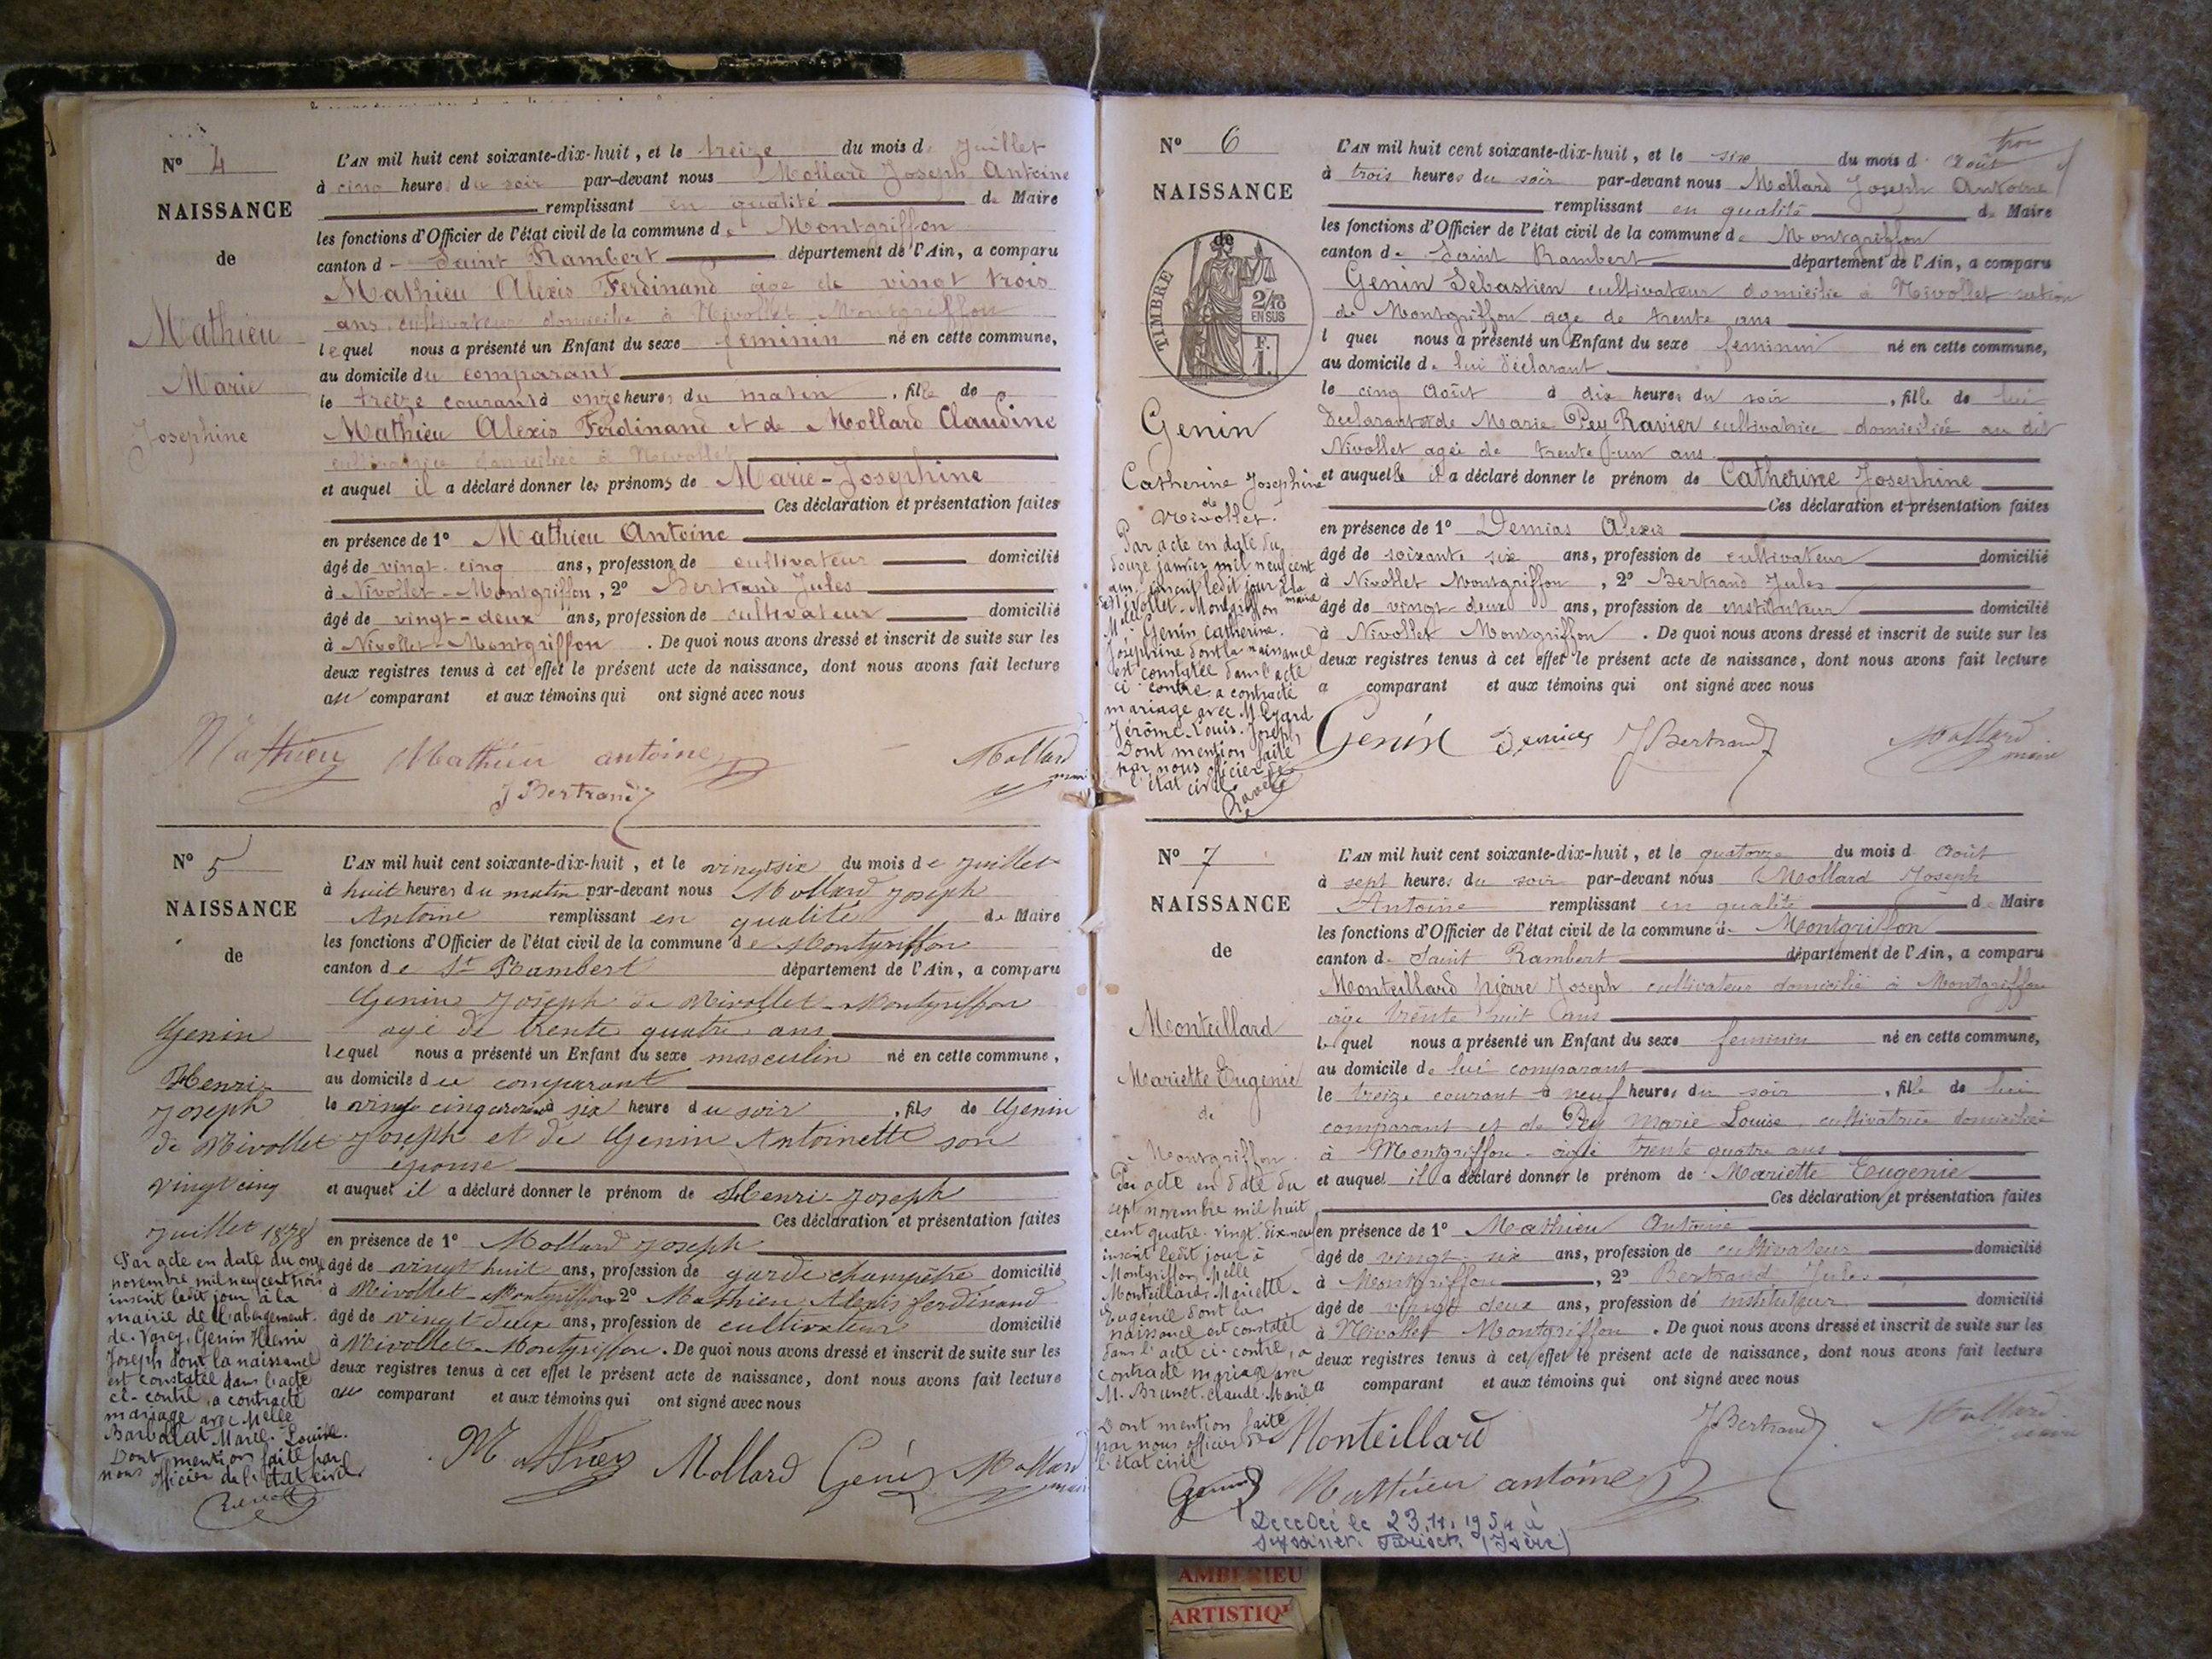 N° 4
NAISSANCE
de
Mathieu
Marie
Josephine
L'AN mil huit cent soixante-dix-huit, et le treize du mois de Juillet
à cinq heures du soir par-devant nous Mollard Joseph Antoine
remplissant en qualité de Maire
les fonctions d'Officier de l'état civil de la commune de Montgriffon
canton de Saint Rambert département de l'Ain, a comparu
Mathieu Alexis Ferdinand agé de vingt trois
ans, cultivateur domicilié à Nivollet Montgriffon
lequel nous a présenté un Enfant du sexe feminin né en cette commune,
au domicile du comparant
le treize courant à onze heures du matin, fille de
Mathieu Alexis Ferdinand et de Mollard Claudine
cultivatrice domiciliée à Nivollet
et auquel il a déclaré donner les prénoms de Marie-Josephine
Ces déclaration et présentation faites
en présence de 1° Mathieu Antoine
âgé de vingt-cinq ans, profession de cultivateur domicilié
à Nivollet-Montgriffon, 2° Bertrand Jules
âgé de vingt-deux ans, profession de cultivateur domicilié
à Nivollet-Montgriffon. De quoi nous avons dressé et inscrit de suite sur les
deux registres tenus à cet effet le présent acte de naissance, dont nous avons fait lecture
au comparant et aux témoins qui ont signé avec nous
Mathieu Mathieu antoine Mollard
maire
J Bertrand
N° 5
NAISSANCE
de
Genin
Henri-
Joseph
de Nivollet
vingt cinq
Juillet 1878
Par acte en date du onze
novembre mil neuf cent trois
inscrit ledit jour à la
mairie de l'abergement.
de. Varey. Genin Henri
Joseph dont la naissance
est constatée dans l'acte
ci-contre, a contracté
mariage avec Melle
Barbalat Marie-Louise.
Dont mention faite par
nous officier de l'état civil.
L'AN mil huit cent soixante-dix-huit, et le vingt six du mois de Juillet
à huit heures du matin par-devant nous Mollard Joseph
Antoine remplissant en qualité de Maire
les fonctions d'Officier de l'état civil de la commune de Montgriffon
canton de St Rambert département de l'Ain, a comparu
Genin Joseph de Nivollet-Montgriffon
agé de trente quatre ans
lequel nous a présenté un Enfant du sexe masculin né en cette commune,
au domicile du comparant
le vingt cinq courant à six heure du soir, fils de Genin
Joseph et de Genin Antoinette son
épouse
et auquel il a déclaré donner le prénom de Henri-Joseph
Ces déclaration et présentation faites
en présence de 1° Mollard Joseph
âgé de vingt huit ans, profession de garde champêtre domicilié
à Nivollet-Montgriffon 2° Mathieu Alexis ferdinand
âgé de vingt deux ans, profession de cultivateur domicilié
à Nivollet-Montgriffon. De quoi nous avons dressé et inscrit de suite sur les
deux registres tenus à cet effet le présent acte de naissance, dont nous avons fait lecture
au comparant et aux témoins qui ont signé avec nous
Mathieu Mollard Genin Mollard
maire
N° 6
NAISSANCE
de
TIMBRE
2/10
EN SUS
F.
1.
Genin
Catherine Josephine
de
Nivollet.
Par acte en date du
douze janvier mil neuf cent
un, inscrit ledit jour à la
mairie
de Nivollet-Montgriffon
Melle Genin Catherine.
Joséphine dont la naissance
est constatée dans l'acte
ci-contre a contracté
mariage avec M. Eyard
Jérôme-Louis-Joseph
Dont mention faite
par nous officier de
l'état civil
L'AN mil huit cent soixante-dix-huit, et le six du mois d Août
à trois heures du soir par-devant nous Mollard Joseph Antoine
remplissant en qualité de Maire
les fonctions d'Officier de l'état civil de la commune de Montgriffon
canton de Saint Rambert département de l'Ain, a comparu
Genin Sebastien cultivateur domicilié à Nivollet section
de Montgriffon age de trente ans
l quel nous a présenté un Enfant du sexe feminin né en cette commune,
au domicile de lui déclarant
le cinq Août à dix heures du soir, fille de lui
déclarant et de Marie Pey Ravier cultivatrice domiciliée au dit
Nivollet agée de trente-un ans.
et auquelle il a déclaré donner le prénom de Catherine Josephine
Ces déclaration et présentation faites
en présence de 1° Demias Alexis
âgé de soixante six ans, profession de cultivateur domicilié
à Nivollet Montgriffon, 2° Bertrand Jules
âgé de vingt-deux ans, profession de instituteur domicilié
à Nivollet Montgriffon. De quoi nous avons dressé et inscrit de suite sur les
deux registres tenus à cet effet le présent acte de naissance, dont nous avons fait lecture
a comparant et aux témoins qui ont signé avec nous
Genin Demias J Bertrand Mollard
maire
N° 7
NAISSANCE
de
Monteillard
Mariette Eugenie
de
Montgriffon.
Par acte en date du
sept novembre mil huit
cent quatre-vingt-dix-neuf
inscrit ledit jour à
Montgriffon, Melle
Monteillard, Mariette-
Eugénie dont la
naissance est constatée
dans l'acte ci-contre, a
contracté mariage avec
M. Brunet-Claude-Marie
Dont mention faite
par nous officier de
l'état civil
Genin
L'AN mil huit cent soixante-dix-huit, et le quatorze du mois d Août
à sept heures du soir par-devant nous Mollard Joseph
Antoine remplissant en qualité de Maire
les fonctions d'Officier de l'état civil de la commune de Montgriffon
canton de Saint Rambert département de l'Ain, a comparu
Monteillard pierre Joseph cultivateur domicilié à Montgriffon
age trente huit ans
lequel nous a présenté un Enfant du sexe feminin né en cette commune,
au domicile de lui comparant
le treize courant à neuf heures du soir, fille de lui
comparant et de Pey Marie Louise, cultivatrice domiciliée
à Montgriffon agée trente quatre ans
et auquel il a déclaré donner le prénom de Mariette Eugenie
Ces déclaration et présentation faites
en présence de 1° Mathieu Antoine
âgé de vingt-six ans, profession de cultivateur domicilié
à Montgriffon, 2° Bertrand Jules
âgé de vingt deux ans, profession de instituteur domicilié
à Nivollet Montgriffon. De quoi nous avons dressé et inscrit de suite sur les
deux registres tenus à cet effet le présent acte de naissance, dont nous avons fait lecture
a comparant et aux témoins qui ont signé avec nous
Monteillard J Bertrand Mollard
maire
Mathieu antoine
Décédée le 23.11.1954 à
Seyssinet. Pariset. (Isère)
AMBERIEU
ARTISTIQ